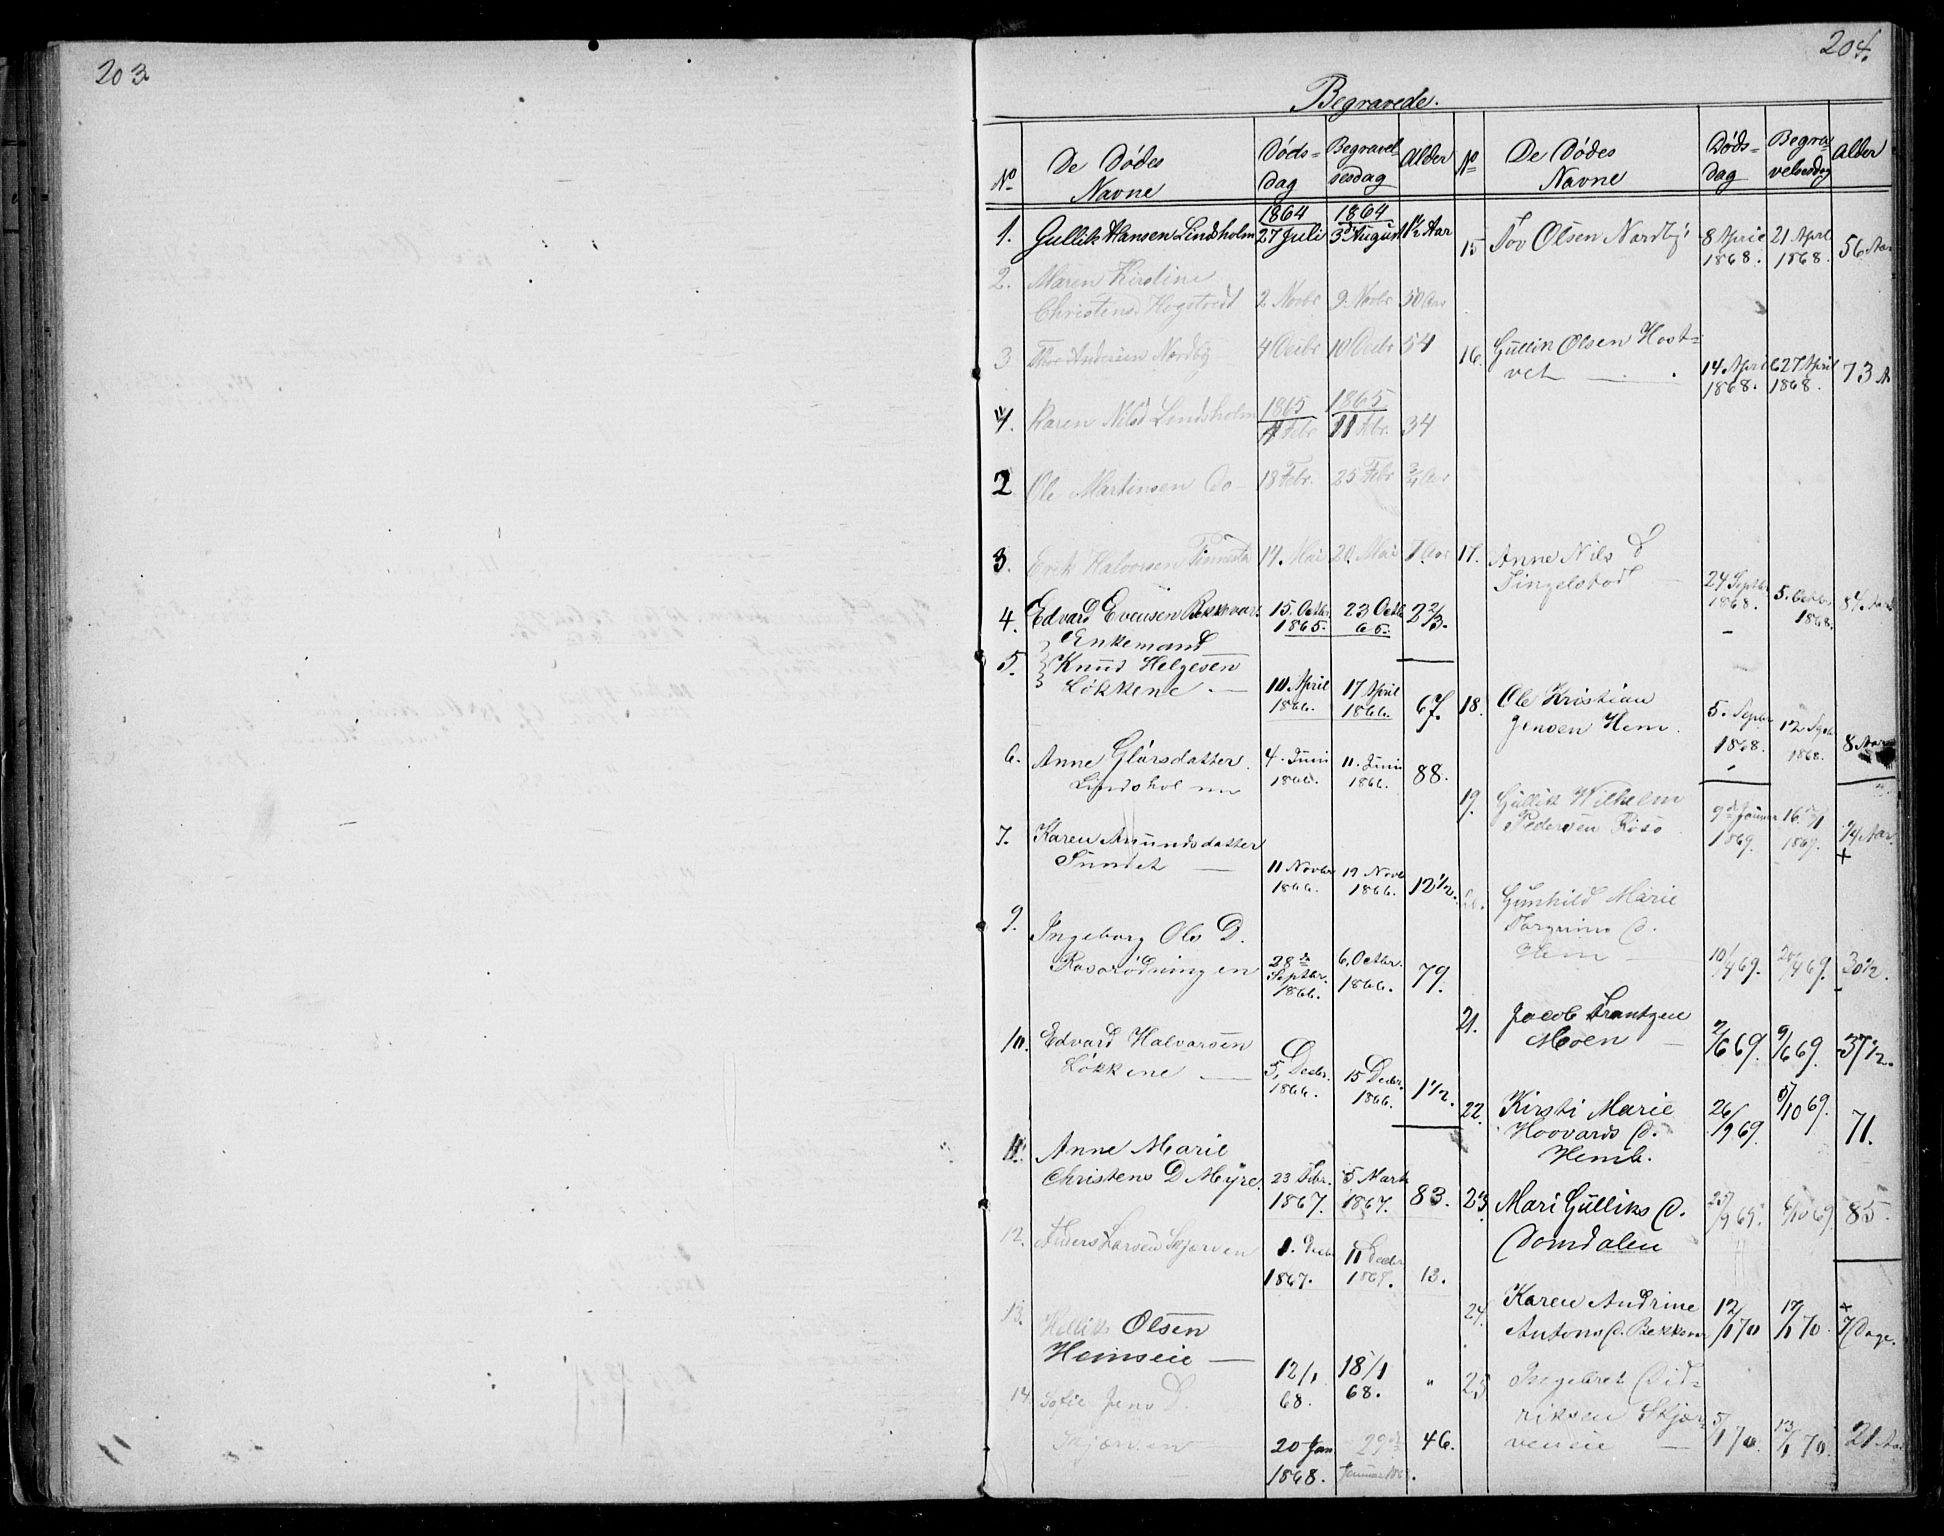 203.
204.
Begravede.
No De Dödes Navne Döds-dag Begravel-sesdag Alder
1. Gullik Hansen Lindsholm 1864 27 Juli 1864 3d August 1½ Aar
2. Maren Kirstine
Christensd Hogstvedt 2 Novbr 9. Novbr 50 Aar
3 Thor Andersen Nordby 4 Decbr 10 Decbr 54
1. Karen Nilsd Lindsholm 1865 4 Febr 1865 11 Febr. 34
2 Ole Martinsen Do 18 Febr. 25 Febr ¾ Aar
3. Erik Halvorsen 14. Mai 20. Mai
4. Edvard Evensen Bekkevar. 15. Octbr 1865. 23 Octb 65. 2 2/3.
Enkemand
5. Knud Helgesen
Lökkene — 10. April 1866. 17 April 1866. 67.
6. Anne Glörsdatter.
Lindsholmn 4. Juni 1866. 11. Juni 1866. 88.
7. Karen Amundsdatter
Sundet — 11 Novbr 1866. 19 Novb 1866. 12½.
9. Ingeborg Ols D.
Rasarödningen 28de Septbr. 1866. 6. Octbr. 1866. 79.
10. Edvard Halvorsen
Lökkene — 5. Decbr. 1866. 15 Decbr. 1866. 1½.
11. Anne Marie
Christens D Myre. 23 Febr. 1867. 5 Marts 1867. 83.
12. Anders Larsen Skjørven 1. Decbr 1867. 11 Decbr 1867. 13.
13. Hellik Olsen
Hemseie — 12/1 68. 18/1 68. "
14. Sofie Jens D.
Skjørven 20 Jan 1868. 29de Januar 46.
No De Dödes Navne Döds-dag Begra-velsesdag Alder
15 Tov Olsen Nordby 8 April 1868. 21 April 1868. 56 Aar
16. Gullik Olsen Host=
vet — . 14 April 1868. 27 April 1868. 73 A
17. Anne Nils D
Tingelstad — 24 Septbr 1868. 5. Octbr. 1868. 84 Aar
18. Ole Kristian
Jensen Hem. 5. Septbr 1868. 12 Septb 1868. 8 Aar
19. Gullik Wilhelm
Pedersen 9de Januar 1869. 16/1 1869. ¼ Aar. +
20. Gunhild Marie
Torgrims D.
Hem — 10/4 69. 20/4 69. 30½.
21. Jacob Frantzen
Moen — 2/6 69. 9/6 69. 37½.
22. Kirsti Marie
Hoovards D.
Hemb. 26/9 69. 5/10 69. 71.
23. Mari Gulliks D.
Domdalen 25/9 69. 6/10 69. 85.
24. Karen Andrine
Antons D. Bekkevar 12/1 70 19/1 70. + 7 Dage.
25 Ingebret Did=
riksen Skjør=
veneie — 5/1 70. 13/1 70. 21 Aar